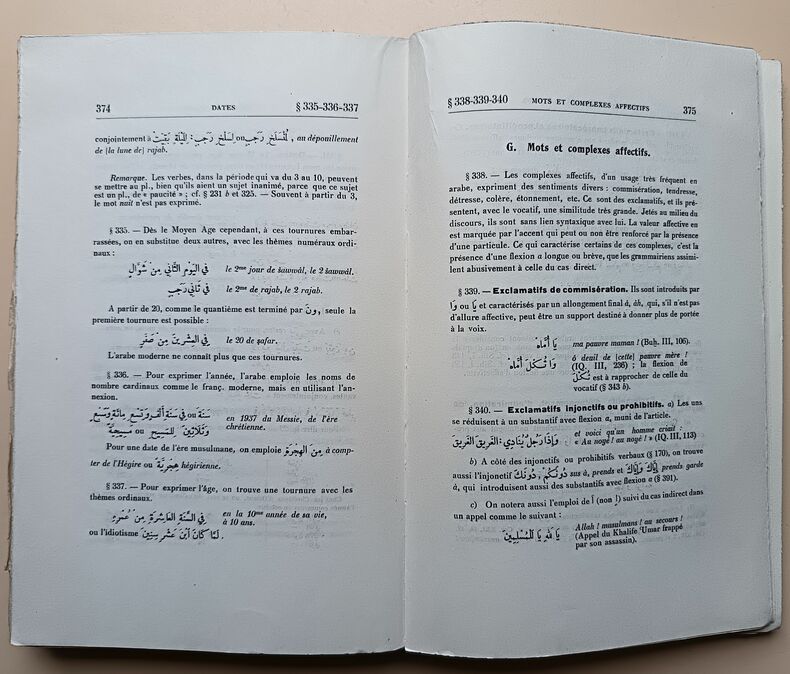 374 DATES § 335-336-337
conjointement à لِلَيْلَةٍ بَقِيَتْ : اِنْسِلَخَ رَجَبٍ ou لِمُنْسَلَخِ رَجَبٍ, au dépouillement
de (la lune de) rajab.
Remarque. Les verbes, dans la période qui va du 3 au 10, peuvent
se mettre au pl., bien qu'ils aient un sujet inanimé, parce que ce sujet
est un pl., de « paucité » ; cf. § 231 b et 325. — Souvent à partir du 3,
le mot nuit n'est pas exprimé.
§ 335. — Dès le Moyen Age cependant, à ces tournures embar-
rassées, on en substitue deux autres, avec les thèmes numéraux ordi-
naux :
فِي الْيَوْمِ الثَّانِي مِنْ شَوَّالٍ le 2me jour de šawwâl, le 2 šawwâl.
فِي ثَانِي رَجَبٍ le 2me de rajab, le 2 rajab.
A partir de 20, comme le quantième est terminé par ونَ, seule la
première tournure est possible :
فِي الْعِشْرِينَ مِنْ صَفَرٍ le 20 de ṣafar.
L'arabe moderne ne connaît plus que ces tournures.
§ 336. — Pour exprimer l'année, l'arabe emploie les noms de
nombre cardinaux comme le franç. moderne, mais en utilisant l'an-
nexion.
فِي سَنَةِ أَلْفٍ وَتِسْعِ مِائَةٍ وَسَبْعٍ ou سَنَةَ en 1937 du Messie, de l'ère
وَثَلَاثِينَ لِلْمَسِيحِ ou مَسِيحِيَّةً chrétienne.
Pour une date de l'ère musulmane, on emploie مِنَ الْهِجْرَةِ à comp-
ter de l'Hégire ou هِجْرِيَّةً hégirienne.
§ 337. — Pour exprimer l'âge, on trouve une tournure avec les
thèmes ordinaux.
فِي السَّنَةِ الْعَاشِرَةِ مِنْ عُمْرِهِ en la 10me année de sa vie,
à 10 ans.
ou l'idiotisme لَمَّا كَانَ ابْنَ عَشْرِ سِنِينَ.
§ 338-339-340 MOTS ET COMPLEXES AFFECTIFS 375
G. Mots et complexes affectifs.
§ 338. — Les complexes affectifs, d'un usage très fréquent en
arabe, expriment des sentiments divers : commisération, tendresse,
détresse, colère, étonnement, etc. Ce sont des exclamatifs, et ils pré-
sentent, avec le vocatif, une similitude très grande. Jetés au milieu du
discours, ils sont sans lien syntaxique avec lui. La valeur affective en
est marquée par l'accent qui peut ou non être renforcé par la présence
d'une particule. Ce qui caractérise certains de ces complexes, c'est la
présence d'une flexion a longue ou brève, que les grammairiens assimi-
lent abusivement à celle du cas direct.
§ 339. — Exclamatifs de commisération. Ils sont introduits par
وَا ou يَا et caractérisés par un allongement final â, âh, qui, s'il n'est pas
d'allure affective, peut être un support destiné à donner plus de portée
à la voix.
يَا أُمَّاهْ ma pauvre maman ! (Buḫ. III, 106).
وَا ثُكْلَ أُمَّاهْ ô deuil de [cette] pauvre mère !
(IQ. III, 236) ; la flexion de
ثُكْلَ est à rapprocher de celle du
vocatif (§ 343 b).
§ 340. — Exclamatifs injonctifs ou prohibitifs. a) Les uns
se réduisent à un substantif avec flexion a, muni de l'article.
فَإِذَا رَجُلٌ يُنَادِي: الْغَرِيقَ الْغَرِيقَ et voici qu'un homme criait :
« Au noyé ! au noyé ! » (IQ. III, 113)
b) A côté des injonctifs ou prohibitifs verbaux (§ 170), on trouve
aussi l'injonctif دُونَكُمْ, دُونَكَ sus à, prends et إِيَّاكَ وَإِيَّاكَ prends garde
à, qui introduisent aussi des substantifs avec flexion a (§ 391).
c) On notera aussi l'emploi de لَ (non لِ) suivi du cas indirect dans
un appel comme le suivant :
يَا لَلّٰهِ يَا لَلْمُسْلِمِينَ Allah ! musulmans ! au secours !
(Appel du Khalife ʿUmar frappé
par son assassin).